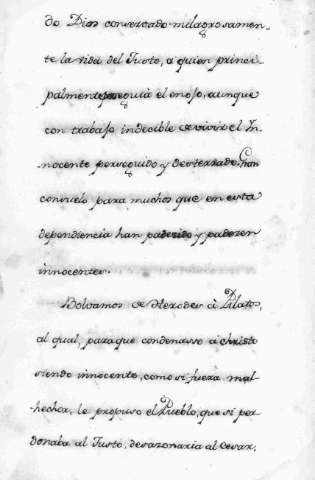 do Dios conservado milagrosamen-
te la vida del Justo, a quien princi
palmente seguia el enojo, aunque
con trabajo indecible de vivir el In-
nocente perseguido, y desterrado. Gran
consuelo para muchos que en esta
dependiencia han padecido y padezen
innocentes.
Bolvamos de Herodes à Pilatos,
al qual, para que condenasse à christo
siendo innocente, como si fuera mal-
hechor, le propuso el Pueblo, que si per
donaba al Justo, desazonaria al Cesar,